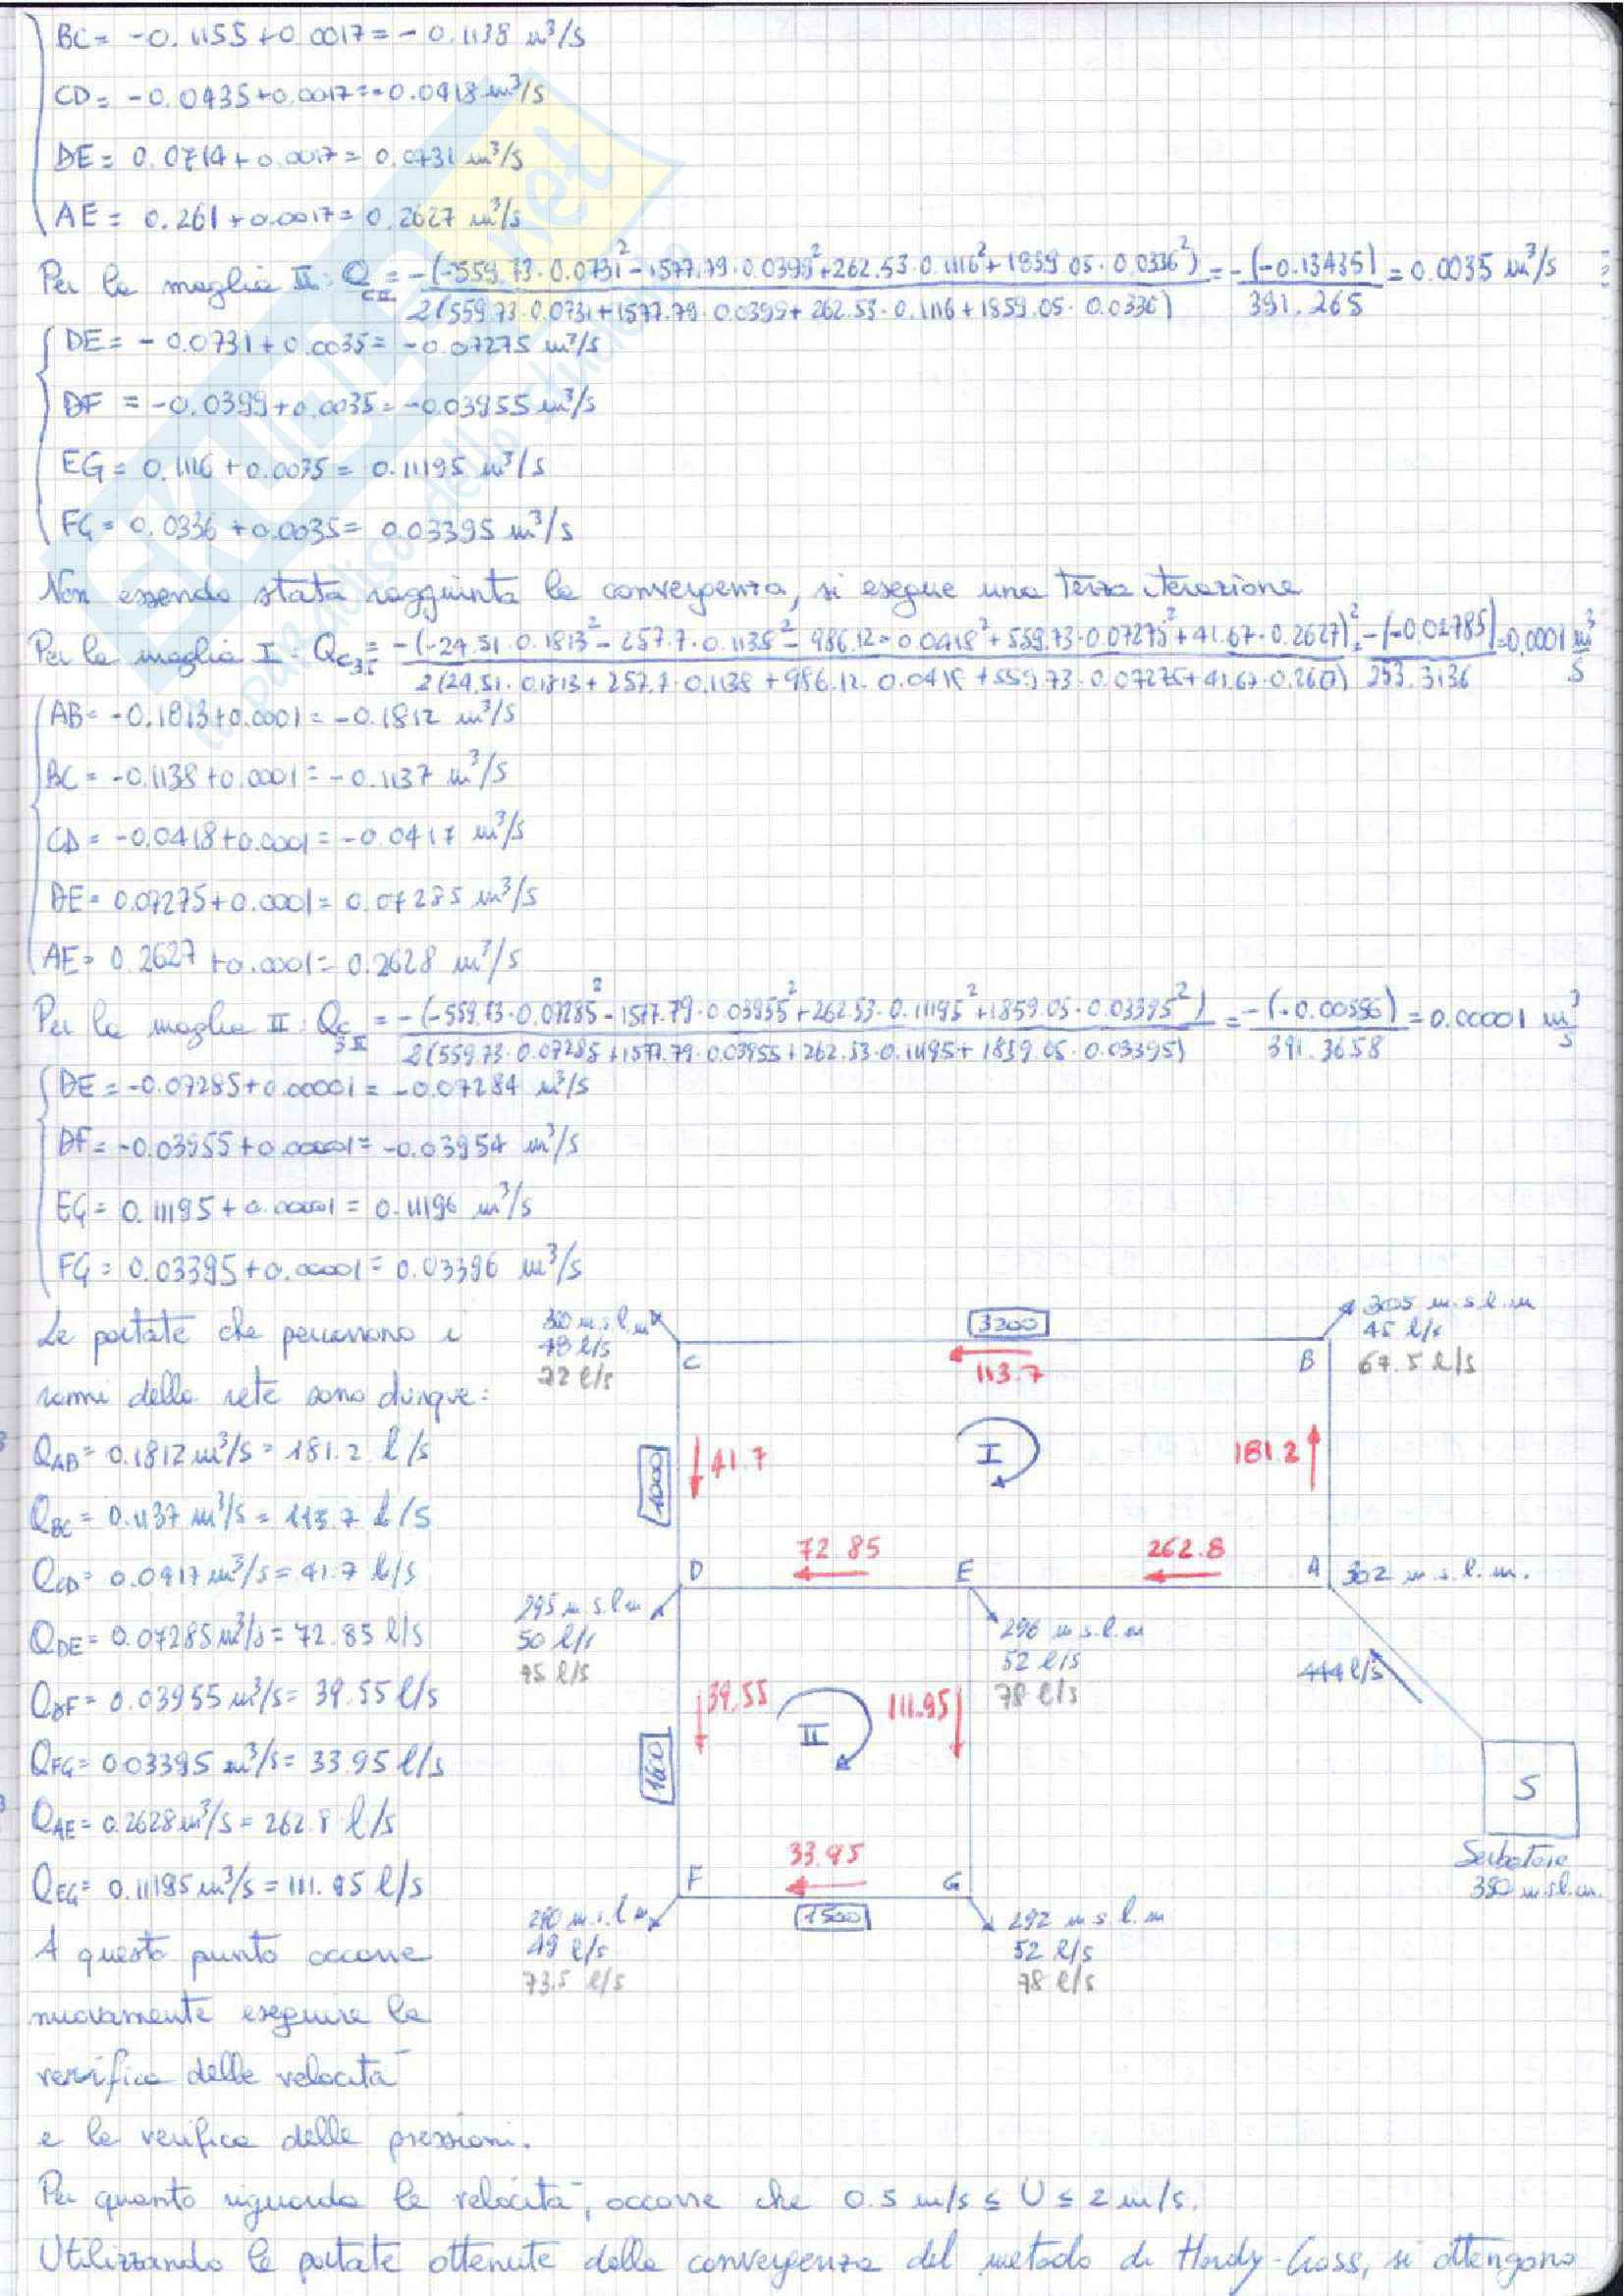 BC = -0.1155+0.0017 = -0.1138 m³/s
CD = -0.0435+0.0017 = -0.0418 m³/s
DE = 0.0714+0.0017 = 0.0731 m³/s
AE = 0.261+0.0017 = 0.2627 m³/s
Per la maglia II: Q_CII = -(-559.73·0.0731²-1577.79·0.0399²+262.53·0.1116²+1859.05·0.0336²) = -(-0.13435) = 0.0035 m³/s
2(559.73·0.0731+1577.79·0.0399+262.53·0.1116+1859.05·0.0336) 391.265
DE = -0.0731+0.0035 = -0.07275 m³/s
DF = -0.0399+0.0035 = -0.03955 m³/s
EG = 0.1116+0.0035 = 0.11195 m³/s
FG = 0.0336+0.0035 = 0.03395 m³/s
Non essendo stata raggiunta la convergenza, si esegue una terza iterazione
Per la maglia I: Q_C3I = -(-24.51·0.1813²-257.7·0.1138²-986.12·0.0418²+559.73·0.07275²+41.67·0.2627)² = -(-0.02785) = 0.0001 m³/s
2(24.51·0.1813+257.7·0.1138+986.12·0.0418+559.73·0.07275+41.67·0.260) 253.3136
AB = -0.1813+0.0001 = -0.1812 m³/s
BC = -0.1138+0.0001 = -0.1137 m³/s
CD = -0.0418+0.0001 = -0.0417 m³/s
DE = 0.07275+0.0001 = 0.07285 m³/s
AE = 0.2627+0.0001 = 0.2628 m³/s
Per la maglia II: Q_C3II = -(-559.73·0.07285²-1577.79·0.03955²+262.53·0.11195²+1859.05·0.03395²) = -(-0.00596) = 0.00001 m³/s
2(559.73·0.07285+1577.79·0.03955+262.53·0.1195+1859.05·0.03395) 391.3658
DE = -0.07285+0.00001 = -0.07284 m³/s
DF = -0.03955+0.00001 = -0.03954 m³/s
EG = 0.11195+0.00001 = 0.11196 m³/s
FG = 0.03395+0.00001 = 0.03396 m³/s
Le portate che percorrono i
rami della rete sono dunque:
Q_AB = 0.1812 m³/s = 181.2 l/s
Q_BC = 0.1137 m³/s = 113.7 l/s
Q_CD = 0.0417 m³/s = 41.7 l/s
Q_DE = 0.07285 m³/s = 72.85 l/s
Q_DF = 0.03955 m³/s = 39.55 l/s
Q_FG = 0.03395 m³/s = 33.95 l/s
Q_AE = 0.2628 m³/s = 262.8 l/s
Q_EG = 0.11195 m³/s = 111.95 l/s
A questo punto occorre
nuovamente eseguire la
verifica delle velocità
e la verifica delle pressioni.
m.s.l.m
48 l/s
72 l/s
C
3200
113.7
B
305 m.s.l.m
45 l/s
67.5 l/s
1000
41.7
I
181.2
D
72.85
E
262.8
A
302 m.s.l.m.
295 m.s.l.m
50 l/s
75 l/s
296 m.s.l.m
52 l/s
78 l/s
444 l/s
39.55
II
111.95
1600
S
Serbatoio
350 m.s.l.m.
33.95
F
G
1500
290 m.s.l.m
49 l/s
73.5 l/s
292 m.s.l.m
52 l/s
78 l/s
Per quanto riguarda le velocità, occorre che 0.5 m/s ≤ U ≤ 2 m/s.
Utilizzando le portate ottenute dalla convergenza del metodo di Hardy-Cross, si ottengono
SKUOLA.net
il paradiso dello studente